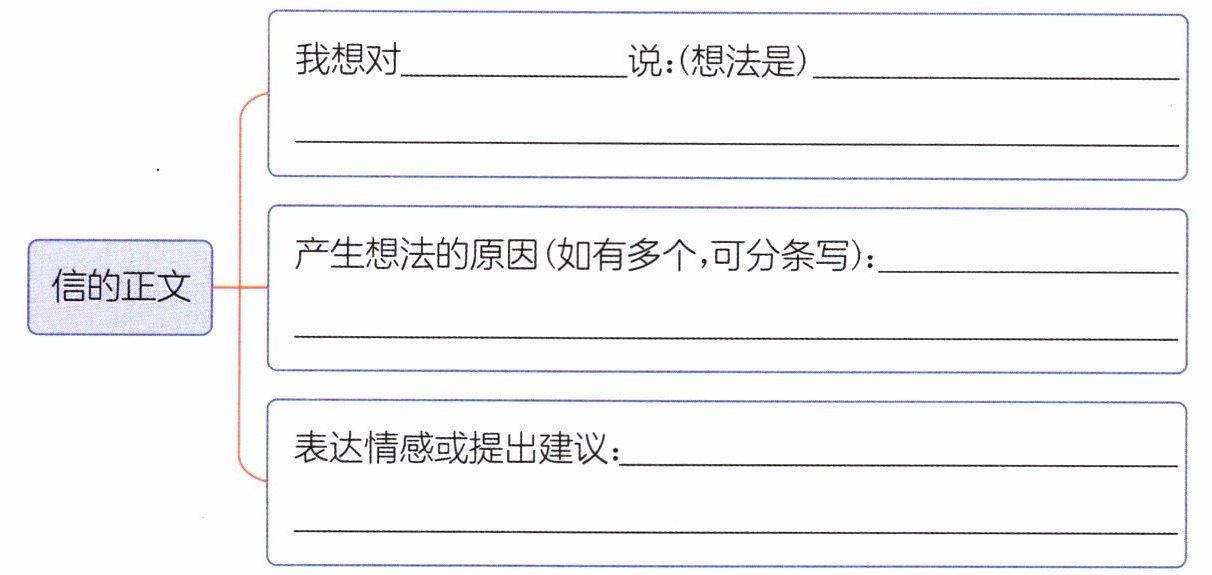 我想对____________说:(想法是)____________________
信的正文
产生想法的原因(如有多个,可分条写):________________
表达情感或提出建议:______________________________